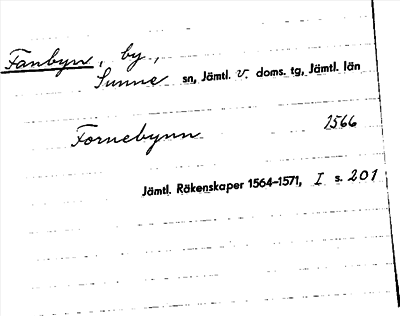 Fanbyn, by,
Sunne sn, Jämtl. v. doms. tg, Jämtl. län
Fornebynn 1566
Jämtl. Räkenskaper 1564-1571, I s. 201